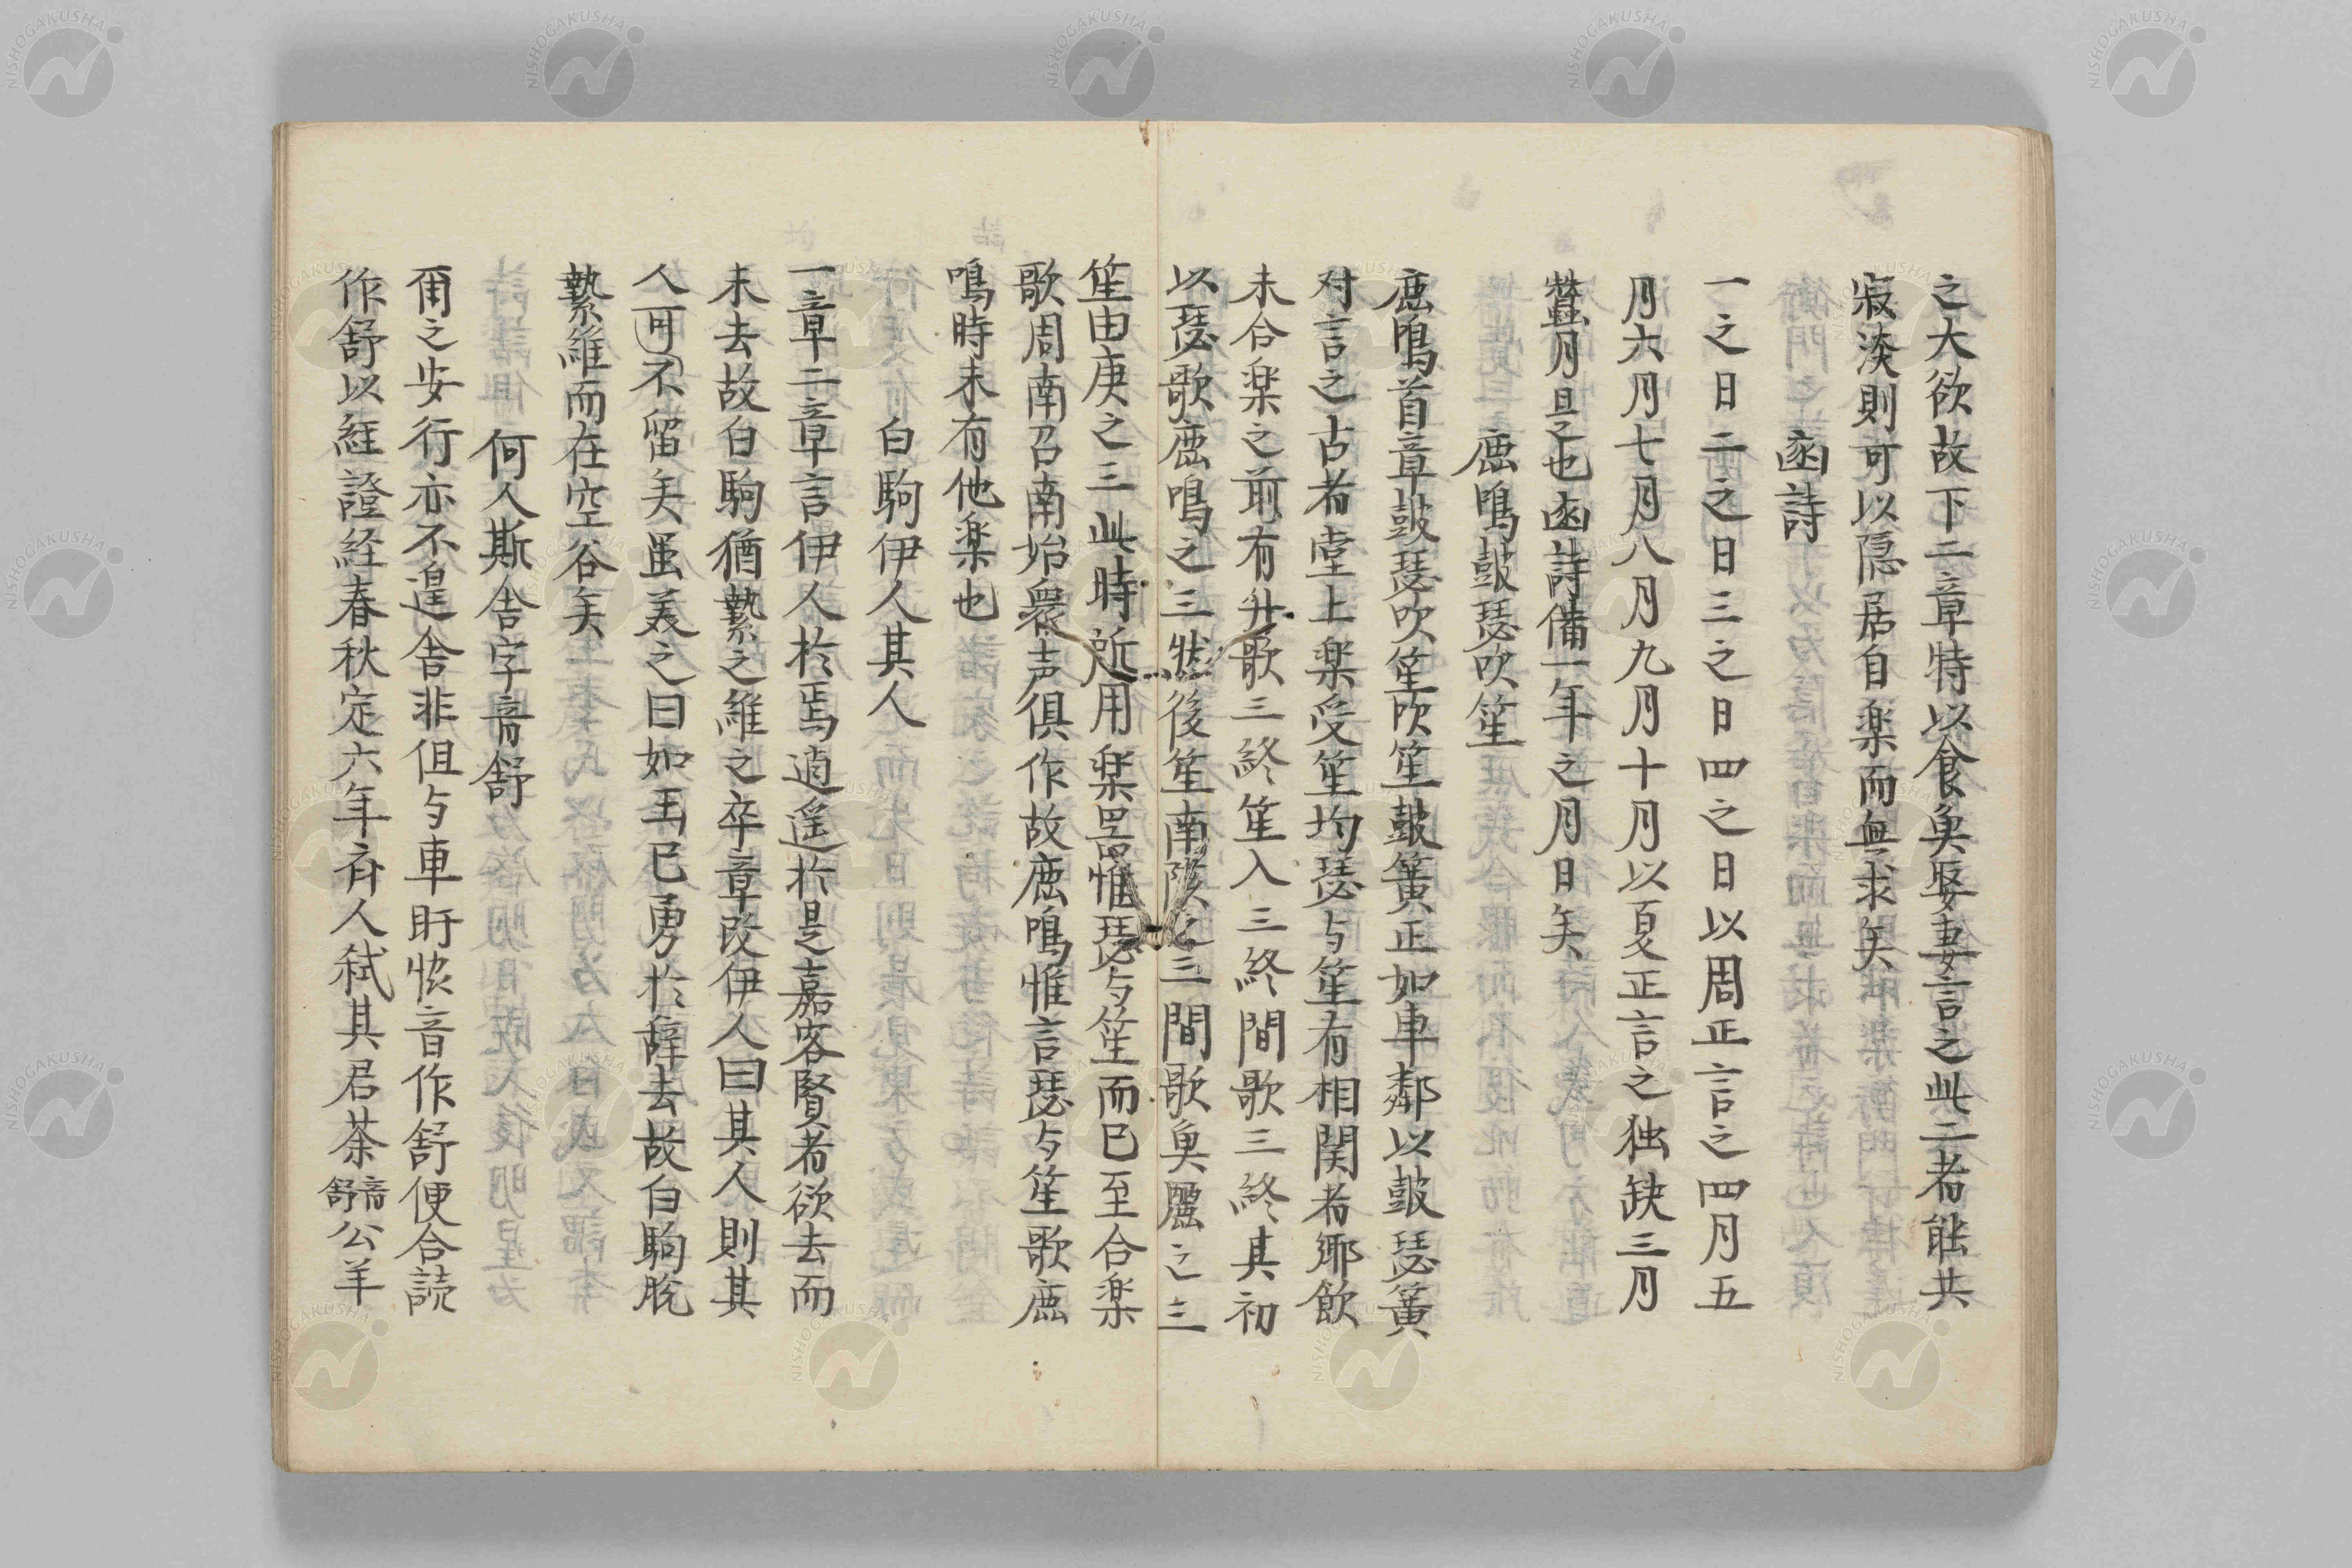 之大欲故下二章特以食魚娶妻言之此二者能共
寂淡則可以隠居自楽而無求矣
豳詩
一之日二之日三之日四之日以周正言之四月五
月六月七月八月九月十月以夏正言之独缺三月
蠶月是也豳詩備一年之月日矣
鹿鳴鼓瑟吹笙
鹿鳴首章鼓瑟吹笙吹笙鼓簧正如車鄰以鼓瑟簧
対言之古者堂上楽受笙均瑟与笙有相関者郷飲
未合楽之前有升歌三終笙入三終間歌三終其初
以瑟歌鹿鳴之三然後笙南陔之三間歌魚麗之三
笙由庚之三此時所用楽器惟瑟与笙而已至合楽
歌周南召南始衆声俱作故鹿鳴惟言瑟与笙歌鹿
鳴時未有他楽也
白駒伊人其人
一章二章言伊人於焉逍遥於是嘉客賢者欲去而
未去故白駒猶縶之維之卒章改伊人曰其人則其
人可不留矣虽美之曰如玉已勇於辞去故白駒脱
縶維而在空谷矣
何人斯舎字音舒
爾之安行亦不遑舎非但与車盱忺音作舒便合読
作舒以経證経春秋定六年斉人弑其君荼音舒公羊
NISHOGAKUSHA